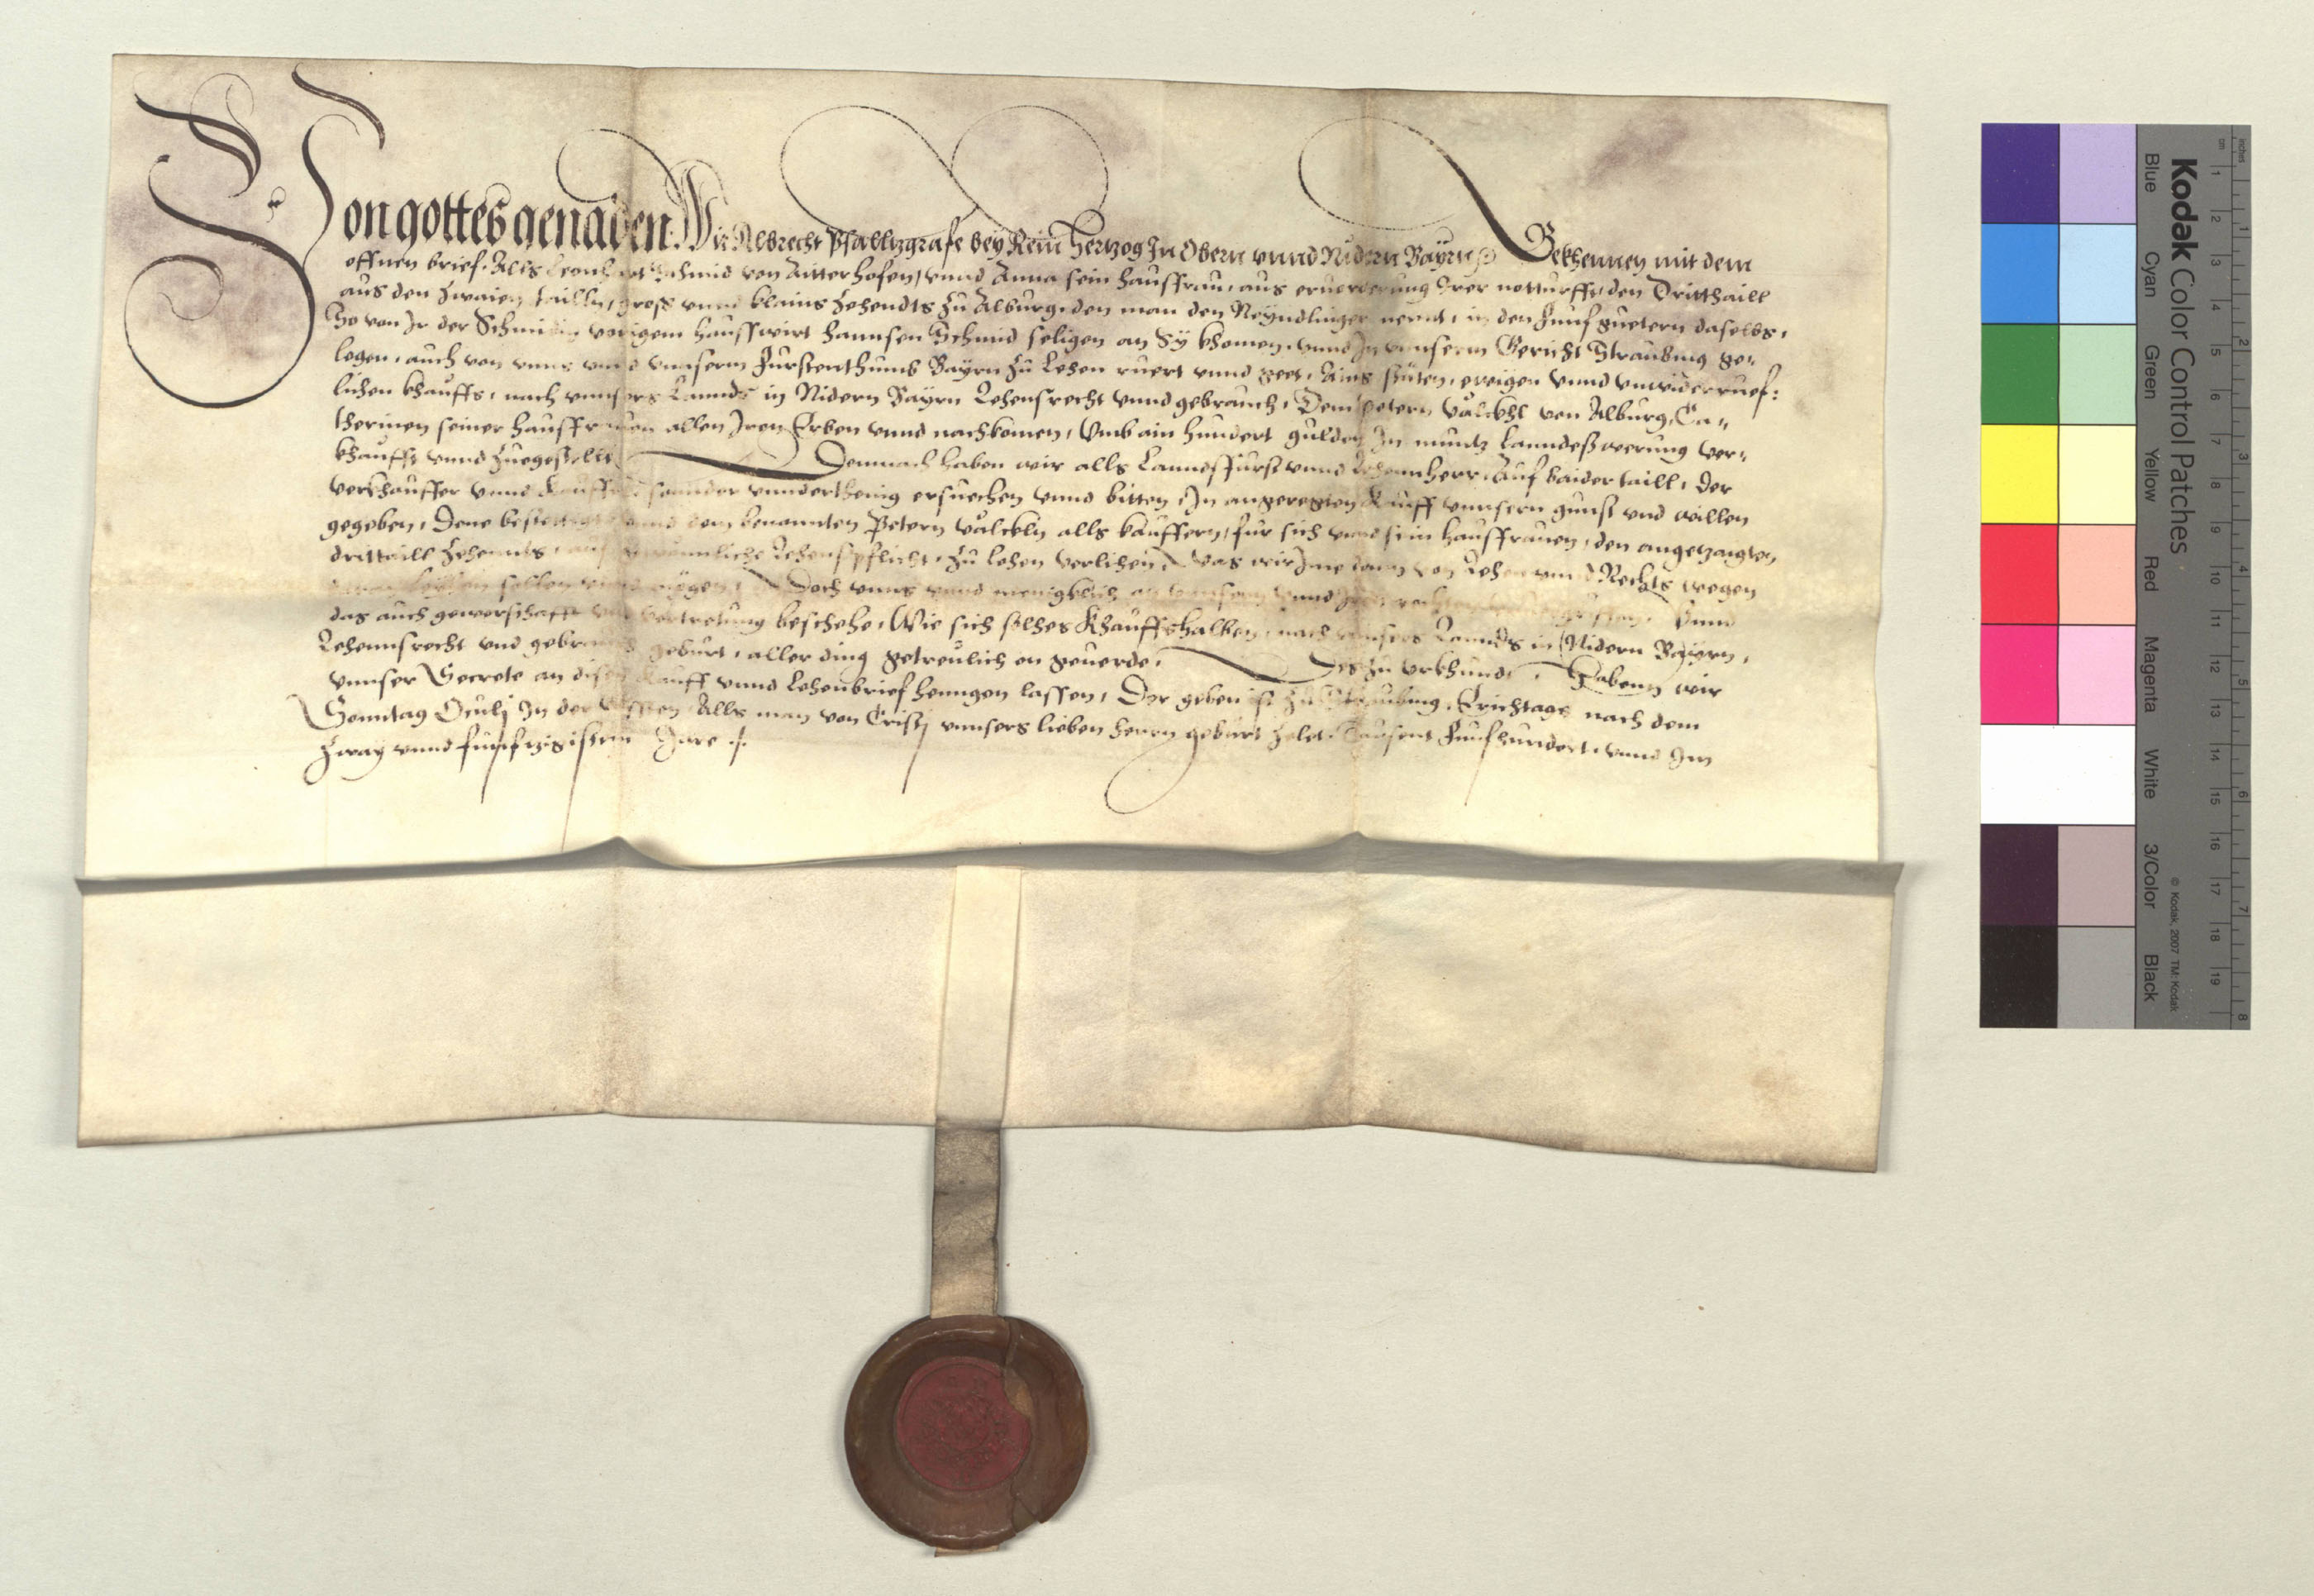 Von gottes genaden Wir Albrecht Pfalltzgrafe bey Rein Hertzog In Obern vnnd Nidern Bayrn Bekhennen mit dem
offnen brief. Alls Leonhart Schmid von Aitterhofen, vnnd Anna sein hausfrau, aus eruorderung Irer notturfft, den Dritthaill
aus den Zwaien taillen, gross vnnd klains Zehendts zu Alburg, den man den Reyndlinger nennt, in den Funf guetern daselbs,
So von Ir der Schmidin vorigem hausswirt hannsen Schmid seligen an Sy khomen, vnnd In vnnserm Gericht Straubing ge-
legen, auch von vnns vnnd vnnserm Furstenthumb Bayrn zu Lehen ruert vnnd geet, Ains stäten, ewigen vnnd vnwiderruef-
lichen khauffs, nach vnnsers Lannds in Nidern Bayrn Lehensrecht vnnd gebrauch, Dem Petern Völckhl von Alburg, Ca-
therinen seiner hausfrauen allen Iren Erben vnnd nachkomen, Vmb ain hundert gulden In muntz Lanndeßwerung ver-
khaufft vnnd zuegestellt Demnach haben wir alls Lanndsfurst vnnd Lehennherr, Auf baider taill, der
verkhauffer vnnd kauffer sonnder vnnderthenig ersuechen vnnd bitten, In angeregten Kauff vnnsern gunst vnd willen
gegeben, Dene bestettigt vnnd dem benannten Petern Völckln alls kauffern, fur sich vnnd sein hausfrauen, den angetzaigten
drittaill Zehennts, auf gewonnliche Lehenspflicht, zu lehen verlihen, Was wir Ime dann von Lehen vnnd Rechts wegen
daran leyhen sollen vnnd mögen, Doch vnns vnnd menigklich an vnnsern vnnd Iren rechten Vnnd
das auch gewerschafft vnd vertretung beschehe, Wie sich solhes Khauffshalben, nach vnnsers Lannds in Nidern Bayrn,
Lehennsrecht vnd gebrauch geburt, aller ding getreulich on geuerde, Des zu vrkhundt, Haben wir
vnnser Secrete an disen Kauff vnnd Lehenbrief henngen lassen, Der geben ist zu Straubing, Erichtags nach dem
Sonntag Oculj In der Vassten Alls man von Cristj vnnsers lieben herrn geburt zelet, Tausent Funfhundert, vnnd Im
Zway vnnd funfftzigisten Jare
Kodak Color Control Patches
Blue Cyan Green Yellow Red Magenta White 3/Color Black
© Kodak, 2007 TM: Kodak
cm 1 2 3 4 5 6 7 8 9 10 11 12 13 14 15 16 17 18 19
inches 1 2 3 4 5 6 7 8